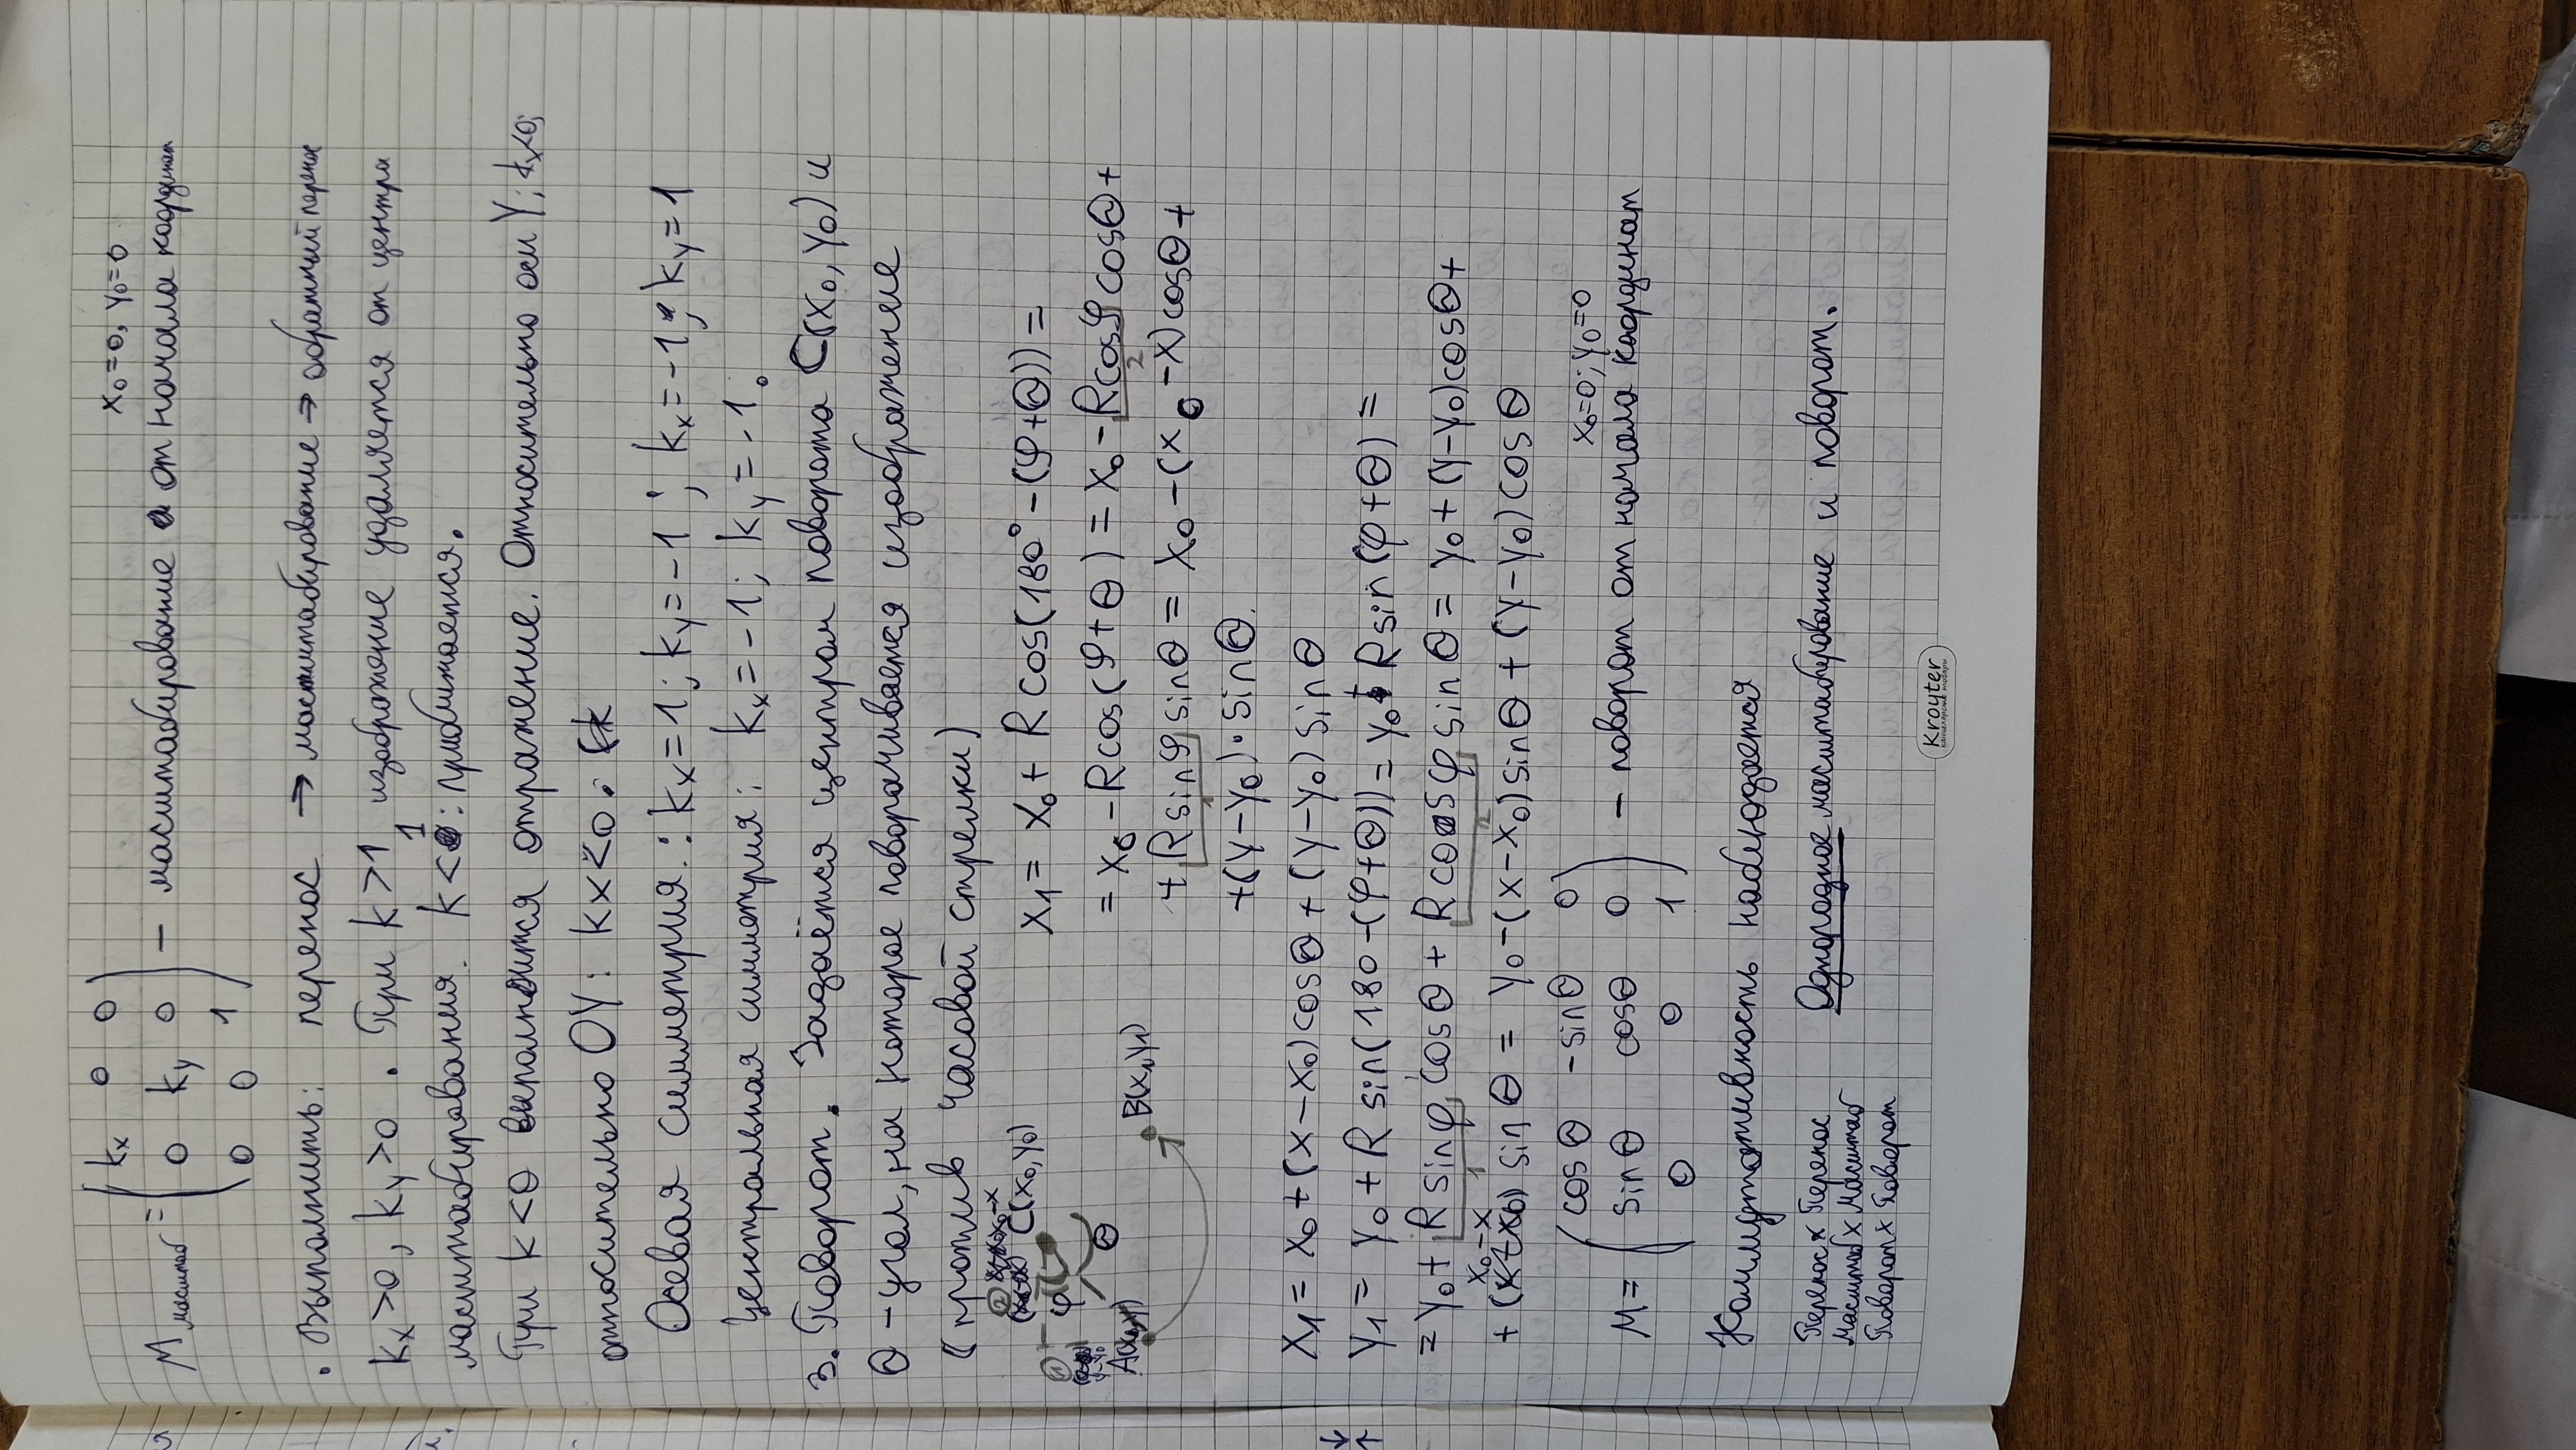 x₀=0, y₀=0
M масштаб = ( kₓ 0 0 — масштабирование от начала координат
0 k_y 0
0 0 1 )
. Выполнить: перенос → масштабирование → обратный перенос
kₓ>0, k_y>0. При k>1 изображение удаляется от центра
масштабирования. k<1: приближается.
При k<0 выполнится отражение. Относительно оси Y: kₓ<0;
относительно OY: kx<0.
Осевая симметрия.: kₓ=1; k_y=-1; kₓ=-1; k_y=1
Центральная симметрия: kₓ=-1; k_y=-1.
3. Поворот. Задаётся центром поворота C(x₀, y₀) и
Θ – угол, на которое поворачивается изображение
(против часовой стрелки)
② x₀-x
C(x₀, y₀)
①
φ
y-y₀
Θ
A(x,y)
B(x₁,y₁)
x₁ = x₀ + R cos(180° - (φ+Θ)) =
= x₀ - R cos(φ+Θ) = x₀ - R cosφ cosΘ +
2
+ R sinφ sinΘ = x₀ - (x₀ - x) cosΘ +
1
+ (y-y₀) · sinΘ.
x₁ = x₀ + (x-x₀) cosΘ + (y-y₀) sinΘ
y₁ = y₀ + R sin(180 - (φ+Θ)) = y₀ + R sin(φ+Θ) =
= y₀ + R sinφ cosΘ + R cosφ sinΘ = y₀ + (y-y₀) cosΘ +
1 2
x₀-x
+ (x-x₀) sinΘ = y₀ - (x-x₀) sinΘ + (y-y₀) cosΘ
x₀=0; y₀=0
M = ( cosΘ -sinΘ 0
sinΘ cosΘ 0 — поворот от начала координат
0 0 1 )
Коммутативность наблюдается
Перенос x Перенос Однородное масштабирование и поворот.
Масштаб x Масштаб
Поворот x Поворот
Kroyter
канцелярские товары